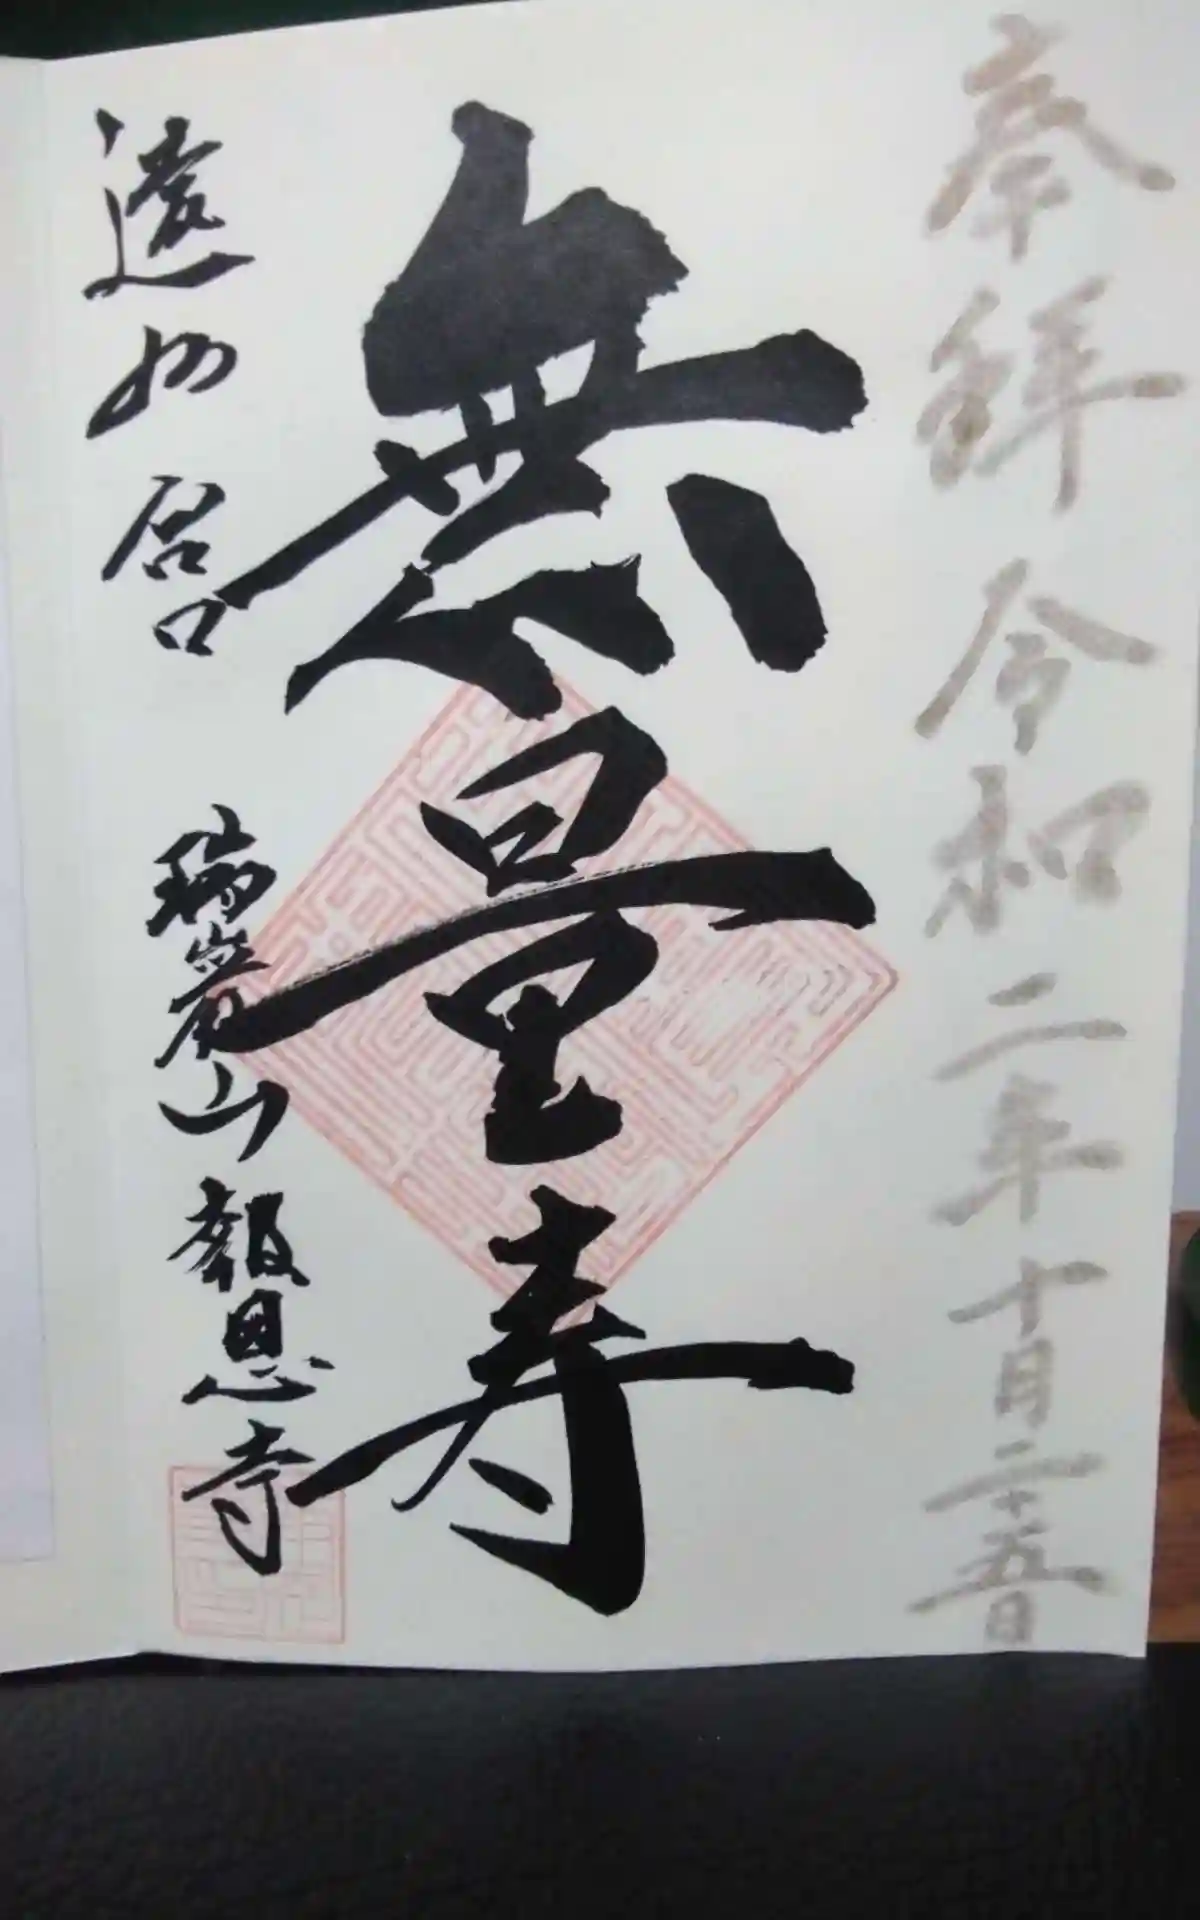 奉拝 令和二年十月二十五日
無量寿
遠州 宮口 瑞巌山 報恩寺